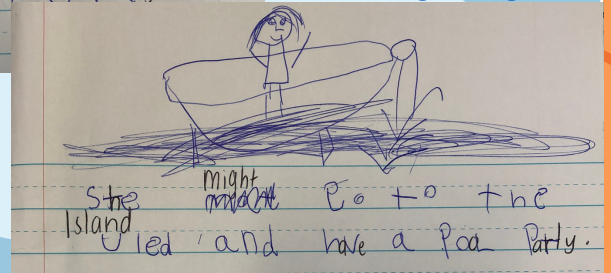 She might go to the
Island
Uled and have a Poa Party.